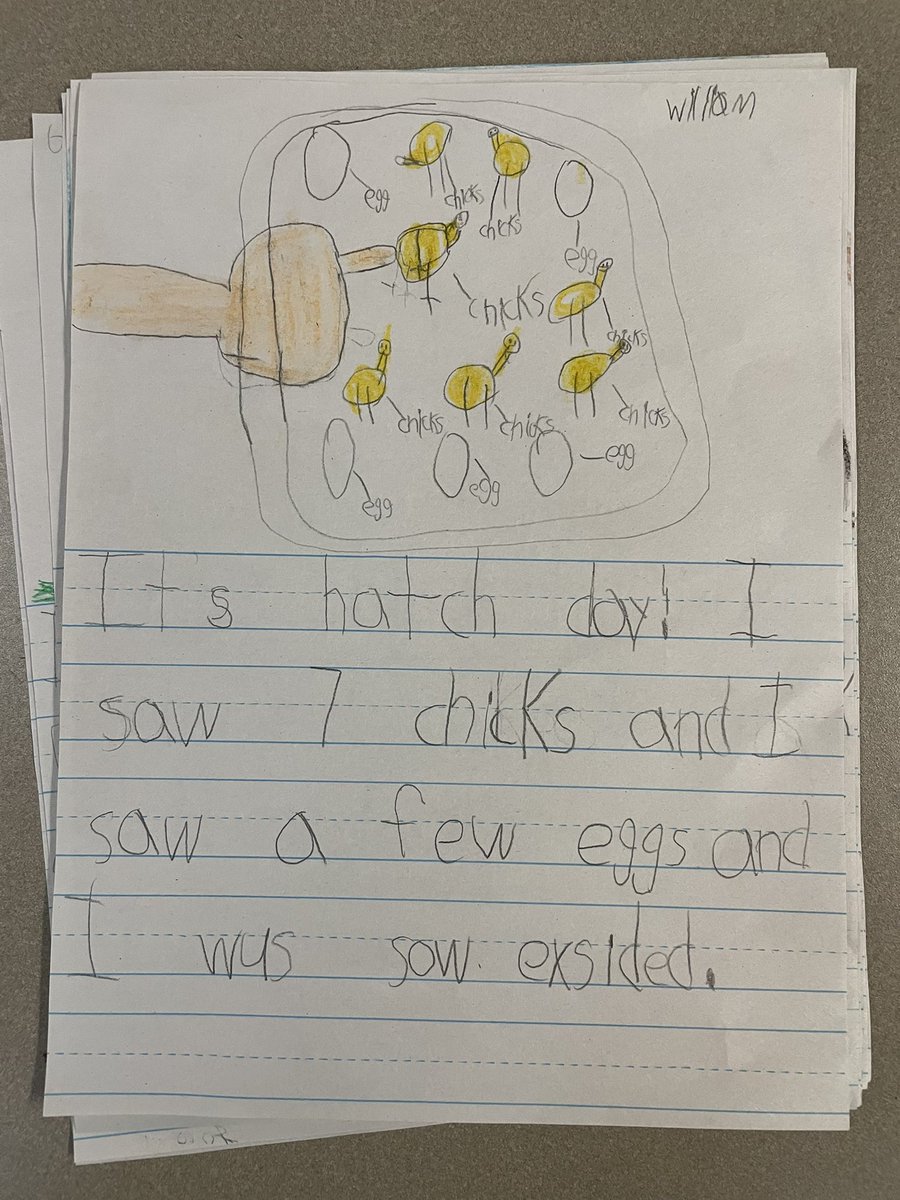 William
egg
chicks
chicks
egg
chicks
chicks
chicks
chicks
chicks
egg
egg
egg
Its hatch day! I
saw 7 chicks and I
saw a few eggs and
I wus sow exsided.